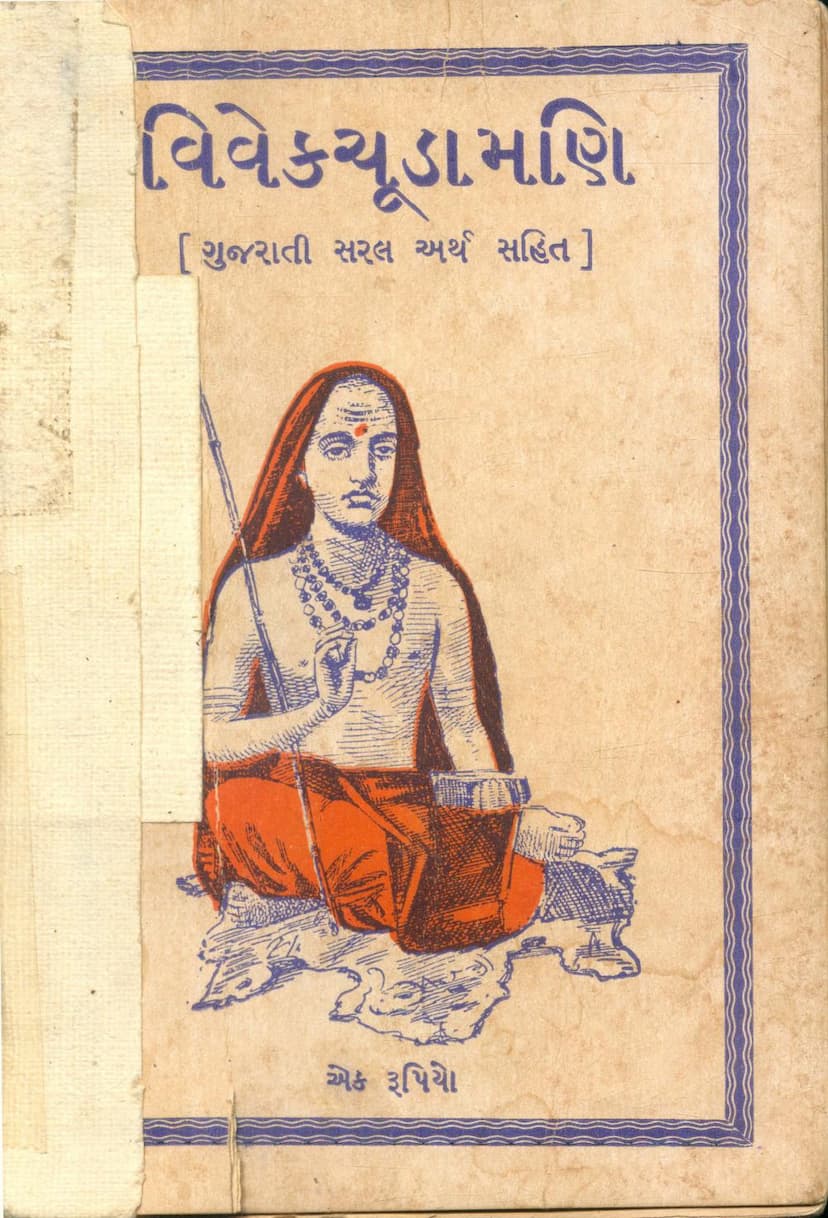 વિવેકચૂડામણિ
[ ગુજરાતી સરલ અર્થ સહિત ]
એક રૂપિયો